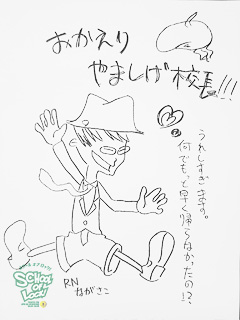 おかえり
やましげ校長!!!
うれしすぎます。
何でもっと早く帰らなかったの!?
RN
ながさこ
SCHOOL
OF
LOCK!